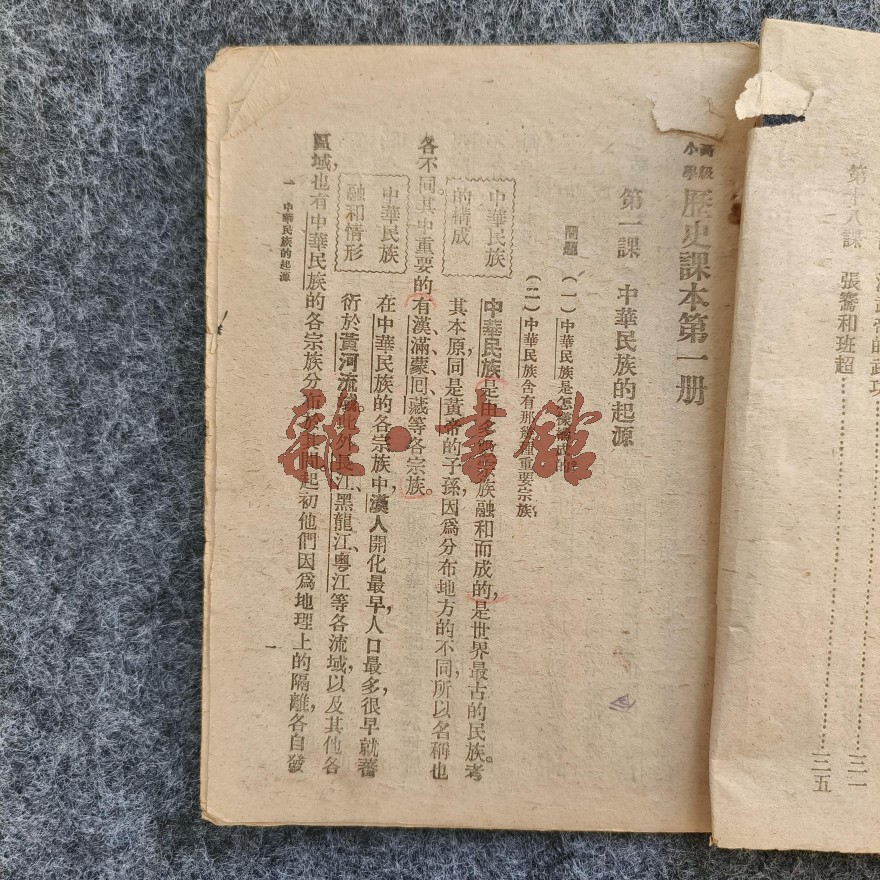 第十八課 張騫和班超……三一
三五
高級小學 歷史課本第一册
第一課 中華民族的起源
問題 (一)中華民族是怎樣構成的
(二)中華民族含有那幾種重要宗族
中華民族的構成
中華民族是由多數宗族融和而成的,是世界最古的民族。考
其本原,同是黃帝的子孫,因爲分布地方的不同,所以名稱也
各不同。其中重要的,有漢、滿、蒙、回、藏等各宗族。
中華民族融和情形
在中華民族的各宗族中,漢人開化最早,人口最多,很早就蕃
衍於黃河流域。此外長江、黑龍江、粵江等各流域,以及其他各
區域,也有中華民族的各宗族分布於其間。起初他們因爲地理上的隔離,各自發
一 中華民族的起源
雜·書館